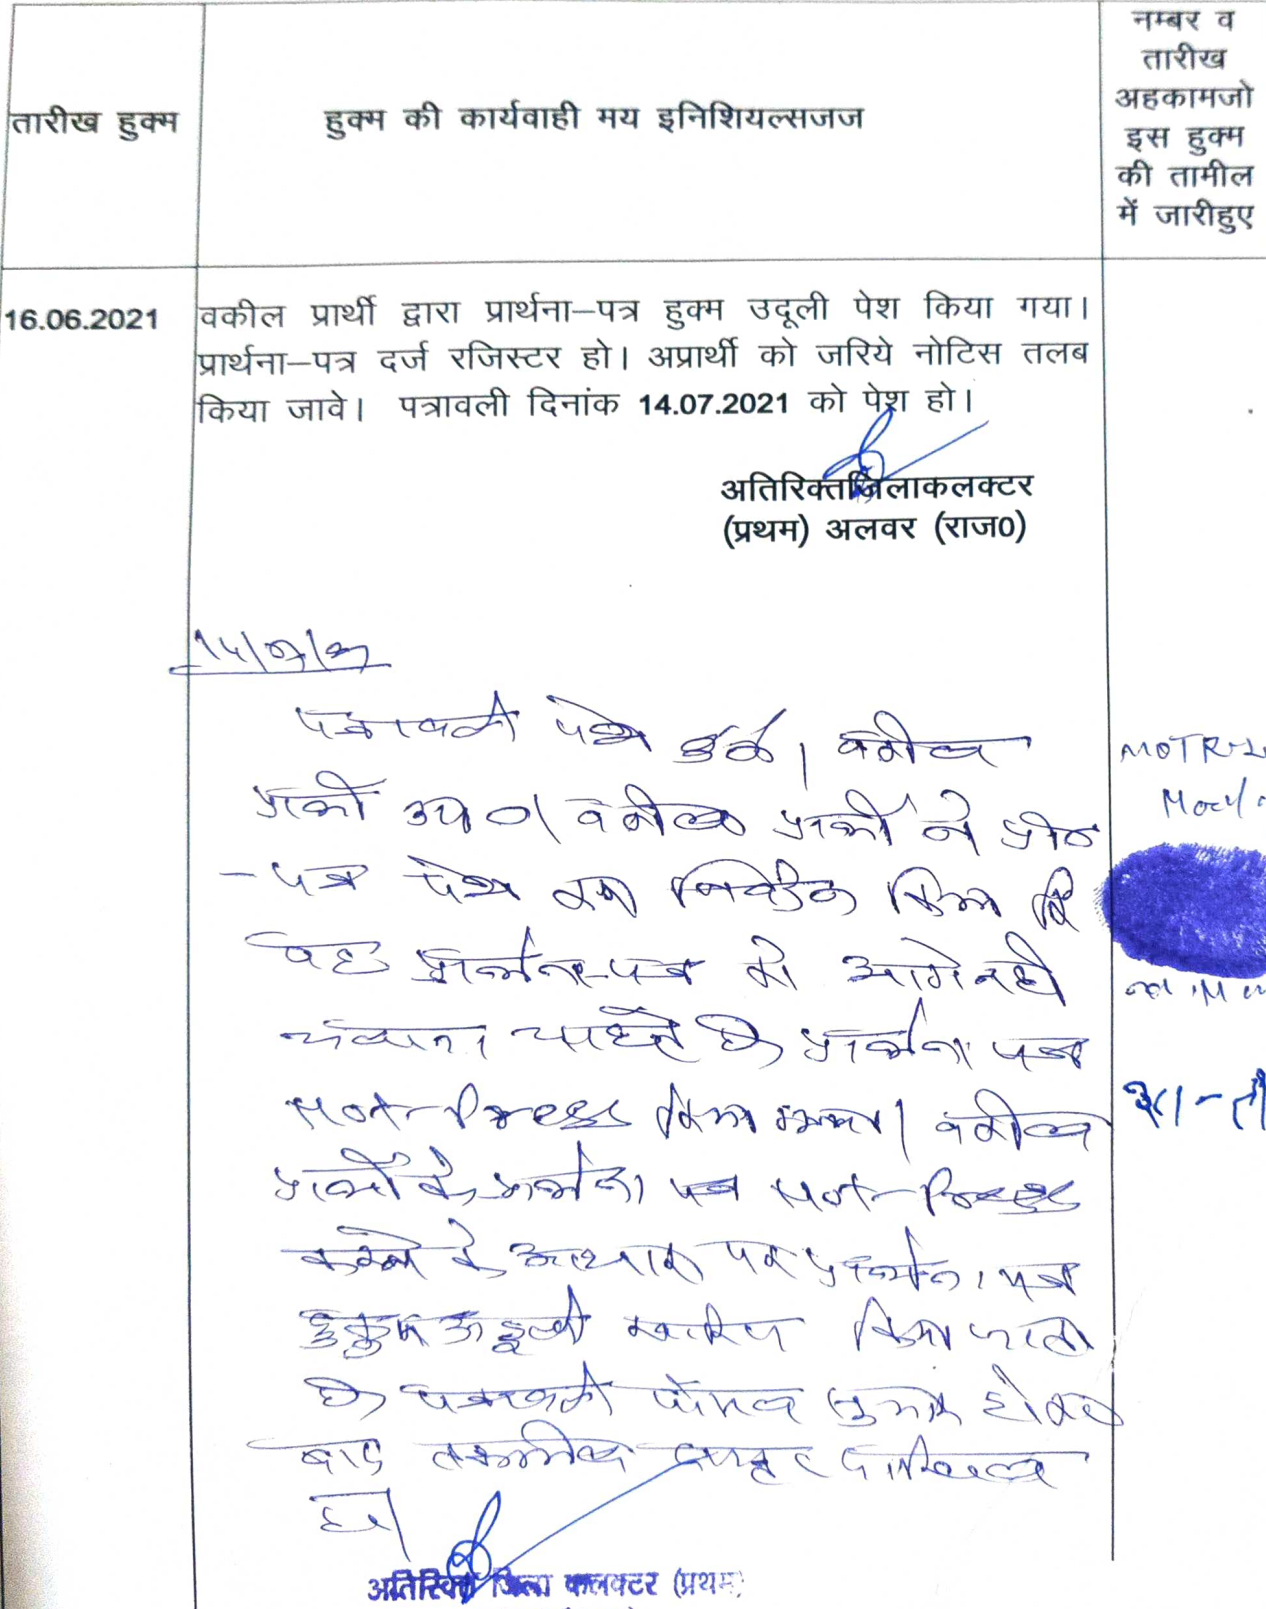 तारीख हुक्म
हुक्म की कार्यवाही मय इनिशियल्सजज
नम्बर व
तारीख
अहकामजो
इस हुक्म
की तामील
में जारीहुए
16.06.2021
वकील प्रार्थी द्वारा प्रार्थना–पत्र हुक्म उदूली पेश किया गया।
प्रार्थना–पत्र दर्ज रजिस्टर हो। अप्रार्थी को जरिये नोटिस तलब
किया जावे। पत्रावली दिनांक 14.07.2021 को पेश हो।
अतिरिक्तजिलाकलक्टर
(प्रथम) अलवर (राज0)
14/07/21
पत्रावली पेश हुई। वकील
प्रार्थी उप0। वकील प्रार्थी ने प्रार्थना
-पत्र पेश कर निवेदन किया कि
वह प्रार्थना-पत्र को आगे नही
चलाना चाहते है प्रार्थना पत्र
Not-Press किया गया। वकील
प्रार्थी के प्रार्थना पत्र Not-Press
करने के आधार पर प्रार्थना पत्र
हुकुम उदूली खारिज किया जाता
है पत्रावली फैसल शुमार होकर
बाद तकमील दफ्तर दाखिल
हो।
अतिरिक्त जिला कलक्टर (प्रथम)